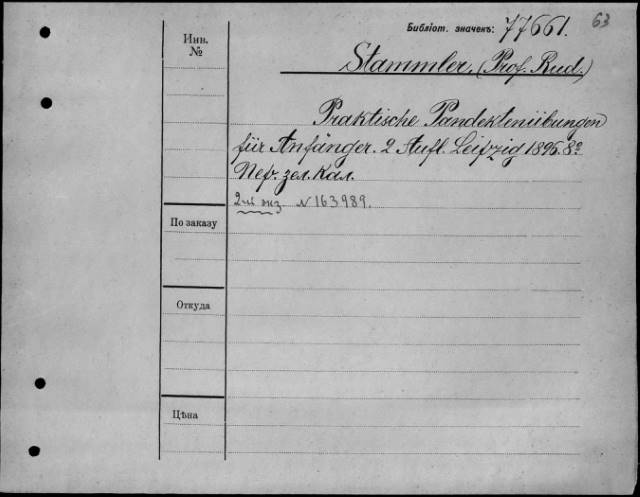 63
Библіот. значекъ: 77661.
Инв. №
Stammler. (Prof. Rud.)
Praktische Pandektenübungen
für Anfänger. 2 Aufl. Leipzig 1896. 8º
Пер. зел. кал.
2-й экз. N 163989.
По заказу
Откуда
Цѣна